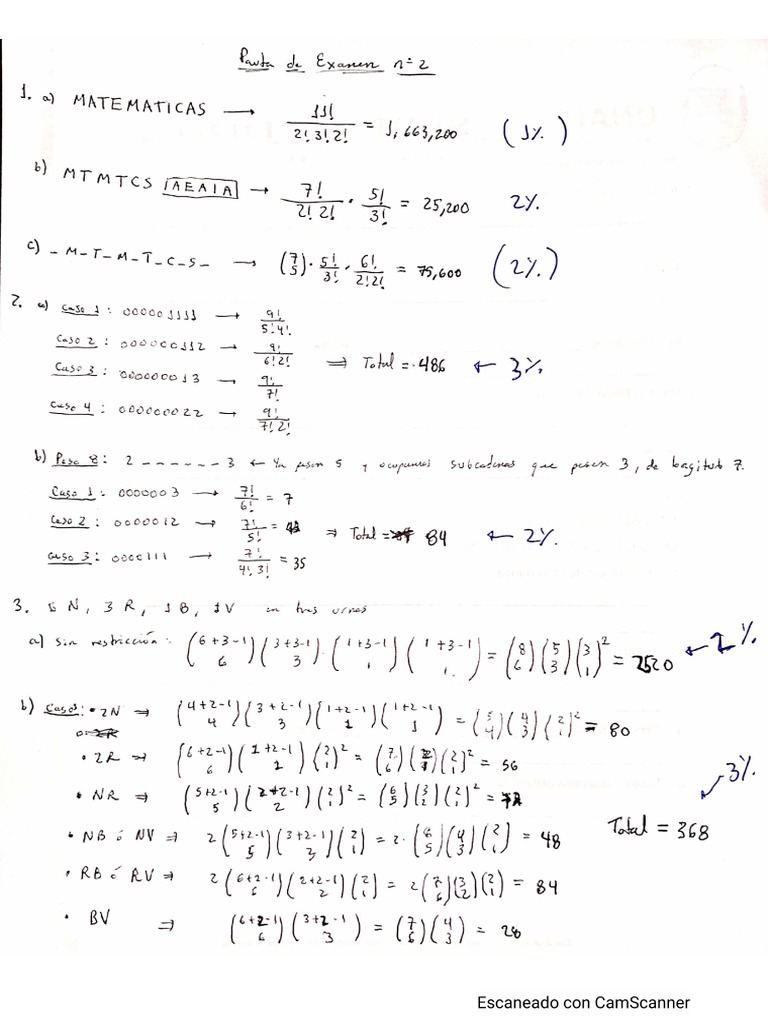 Pauta de Examen n°2
1. a) MATEMATICAS → 11! / 2! 3! 2! = 1,663,200 (1%)
b) MTMTCS IAEAIA → 7! / 2! 2! · 5! / 3! = 25,200 2%
c) _M_T_M_T_C_S_ → (7 5) · 5! / 3! · 6! / 2! 2! = 75,600 (2%)
2. a) Caso 1: 000001111 → 9! / 5! 4!
Caso 2: 000000112 → 9! / 6! 2!
Caso 3: 000000013 → 9! / 7! ⇒ Total = 486 ← 3%
Caso 4: 000000022 → 9! / 7! 2!
b) Peso 8: 2 _ _ _ _ _ _ _ 3 ← Ya pesan 5 y ocupamos subcadenas que pesen 3, de longitud 7.
Caso 1: 0000003 → 7! / 6! = 7
Caso 2: 0000012 → 7! / 5! = 42 ⇒ Total = 84 ← 2%
Caso 3: 0000111 → 7! / 4! 3! = 35
3. 6 N, 3 R, 1 B, 1 V en tres urnas
a) Sin restricción: (6+3-1 6) (3+3-1 3) · (1+3-1 1) (1+3-1 1) = (8 6) (5 3) (3 1)² = 2520 ← 2%
b) Casos: • 2N ⇒ (4+2-1 4) (3+2-1 3) (1+2-1 1) (1+2-1 1) = (5 4) (4 3) (2 1)² = 80
• 2R ⇒ (6+2-1 6) (1+2-1 1) (2 1)² = (7 6) (2 1) (2 1)² = 56
• NR ⇒ (5+2-1 5) (2+2-1 2) (2 1)² = (6 5) (3 2) (2 1)² = 72
• NB ó NV ⇒ 2 (5+2-1 5) (3+2-1 3) (2 1) = 2 · (6 5) (4 3) (2 1) = 48
• RB ó RV ⇒ 2 (6+2-1 6) (2+2-1 2) (2 1) = 2 (7 6) (3 2) (2 1) = 84
• BV ⇒ (6+2-1 6) (3+2-1 3) = (7 6) (4 3) = 28
Total = 368
3%
Escaneado con CamScanner